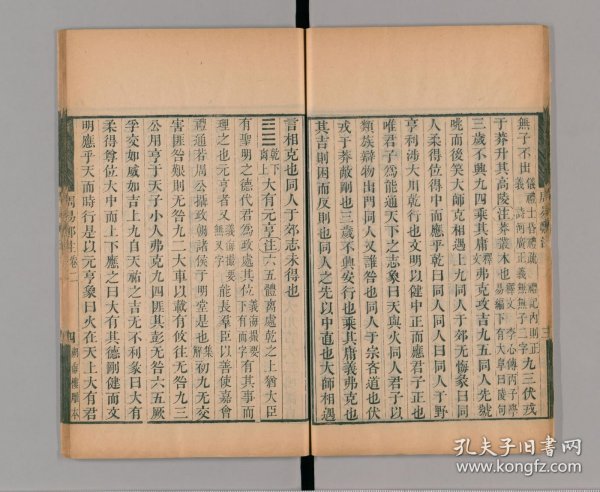 無子不出
儀禮士昏禮疏 禮記內則正
義 詩河廣正義無無子二字
九三伏戎
于莽升其高陵注莽叢木也
釋文 李心傳丙子學
易編 下有大阜曰陵句
三歲不興九四乘其庸
釋文
弗克攻吉九五同人先號
咷而後笑大師克相遇上九同人于郊无悔彖曰同
人柔得位得中而應乎乾曰同人同人曰同人于野
亨利涉大川乾行也文明以健中正而應君子正也
唯君子爲能通天下之志象曰天與火同人君子以
類族辯物出門同人又誰咎也同人于宗吝道也伏
戎于莽敵剛也三歲不興安行也乘其庸義弗克也
其吉則困而反則也同人之先以中直也大師相遇
言相克也同人于郊志未得也
乾下
離上
大有元亨注六五體離處乾之上猶大臣
有聖明之德代君爲政處其位
義海撮要
下有而字
有其事而
理之也元亨者又
義海撮要
無又字
能長羣臣以善使嘉會
禮通若周公攝政朝諸侯于明堂是也
集
解
初九无交
害匪咎艱則无咎九二大車以載有攸往无咎九三
公用亨于天子小人弗克九四匪其彭无咎六五厥
孚交如威如吉上九自天祐之吉无不利彖曰大有
柔得尊位大中而上下應之曰大有其德剛健而文
明應乎天而時行是以元亨象曰火在天上大有君
周易鄭注卷二
四
湖海樓雕本
孔夫子旧书网
www.kongfz.com